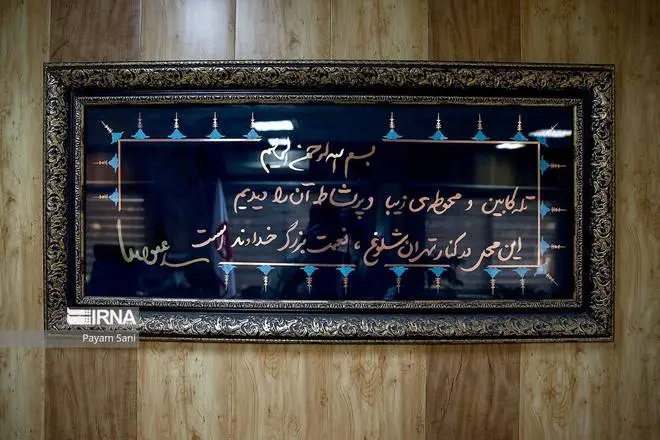 بسم الله الرحمن الرحیم
تله کابین و محوطه‌ی زیبا و پرنشاط آن را دیدیم
این محل در کنار تهران شلوغ، نعمت بزرگ خداوند است
IRNA
Payam Sani